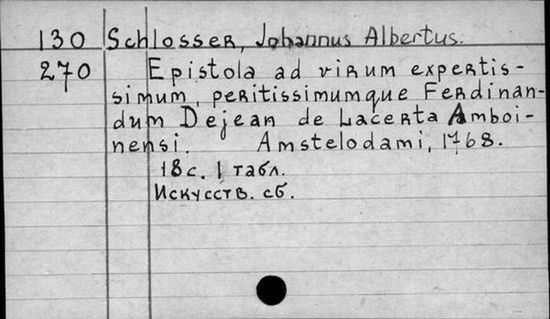 130 Schlosser, Johannus Albertus.
270 Epistola ad virum expertis-
simum, peritissimumque Ferdinan-
dum Dejean de Lacerta Amboi-
nensi. Amstelodami, 1768.
18с. 1 табл.
Искусств. сб.